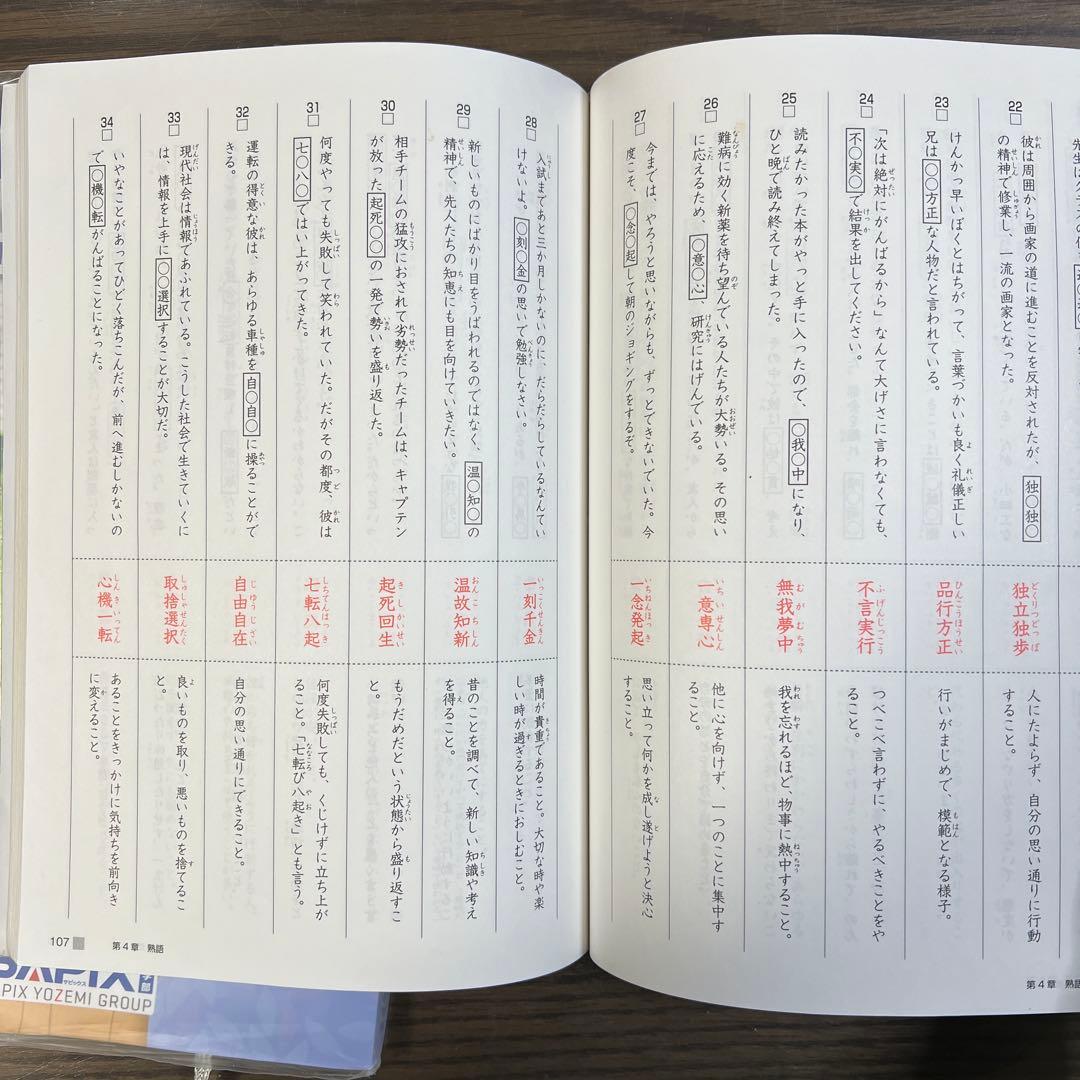 22
彼は周囲から画家の道に進むことを反対されたが、独〇独〇
の精神で修業し、一流の画家となった。
独立独歩
人にたよらず、自分の思い通りに行動
すること。
23
けんかっ早いぼくとはちがって、言葉づかいも良く礼儀正しい
兄は〇〇方正な人物だと言われている。
品行方正
行いがまじめで、模範となる様子。
24
「次は絶対にがんばるから」なんて大げさに言わなくても、
不〇実〇で結果を出してください。
不言実行
つべこべ言わずに、やるべきことをや
ること。
25
読みたかった本がやっと手に入ったので、〇我〇中になり、
ひと晩で読み終えてしまった。
無我夢中
我を忘れるほど、物事に熱中すること。
26
難病に効く新薬を待ち望んでいる人たちが大勢いる。その思い
に応えるため、〇意〇心、研究にはげんでいる。
一意専心
他に心を向けず、一つのことに集中す
ること。
27
今までは、やろうと思いながらも、ずっとできないでいた。今
度こそ、〇念〇起して朝のジョギングをするぞ。
一念発起
思い立って何かを成し遂げようと決心
すること。
第4章 熟語
28
入試まであと三か月しかないのに、だらだらしているなんてい
けないよ。〇刻〇金の思いで勉強しなさい。
一刻千金
時間が貴重であること。大切な時や楽
しい時が過ぎるときにおしむこと。
29
新しいものにばかり目をうばわれるのではなく、温〇知〇の
精神で、先人たちの知恵にも目を向けていきたい。
温故知新
昔のことを調べて、新しい知識や考え
を得ること。
30
相手チームの猛攻におされて劣勢だったチームは、キャプテン
が放った起死〇〇の一発で勢いを盛り返した。
起死回生
もうだめだという状態から盛り返すこ
と。
31
何度やっても失敗して笑われていた。だがその都度、彼は
七〇八〇ではい上がってきた。
七転八起
何度失敗しても、くじけずに立ち上が
ること。「七転び八起き」とも言う。
32
運転の得意な彼は、あらゆる車種を自〇自〇に操ることがで
きる。
自由自在
自分の思い通りにできること。
33
現代社会は情報であふれている。こうした社会で生きていくに
は、情報を上手に〇〇選択することが大切だ。
取捨選択
良いものを取り、悪いものを捨てるこ
と。
34
いやなことがあってひどく落ちこんだが、前へ進むしかないの
で〇機〇転がんばることになった。
心機一転
あることをきっかけに気持ちを前向き
に変えること。
107
第4章 熟語
SAPIX
サピックス
APIX YOZEMI GROUP